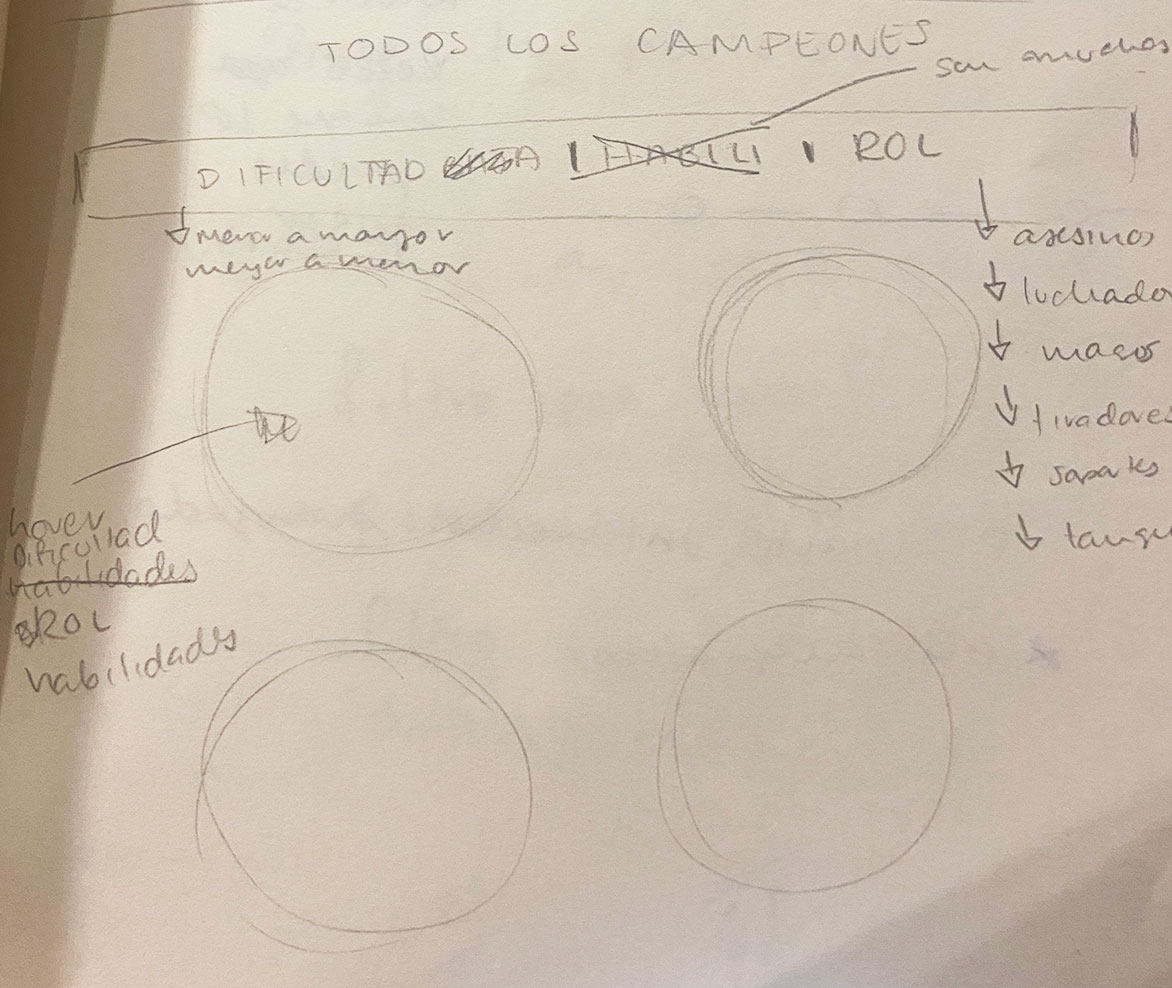 TODOS LOS CAMPEONES
son muchos
DIFICULTAD | HABILI | ROL
menor a mayor
meyor a menor
asesinos
luchador
magos
tiradores
soportes
tanqu
hover
Dificultad
habilidades
ROL
habilidades